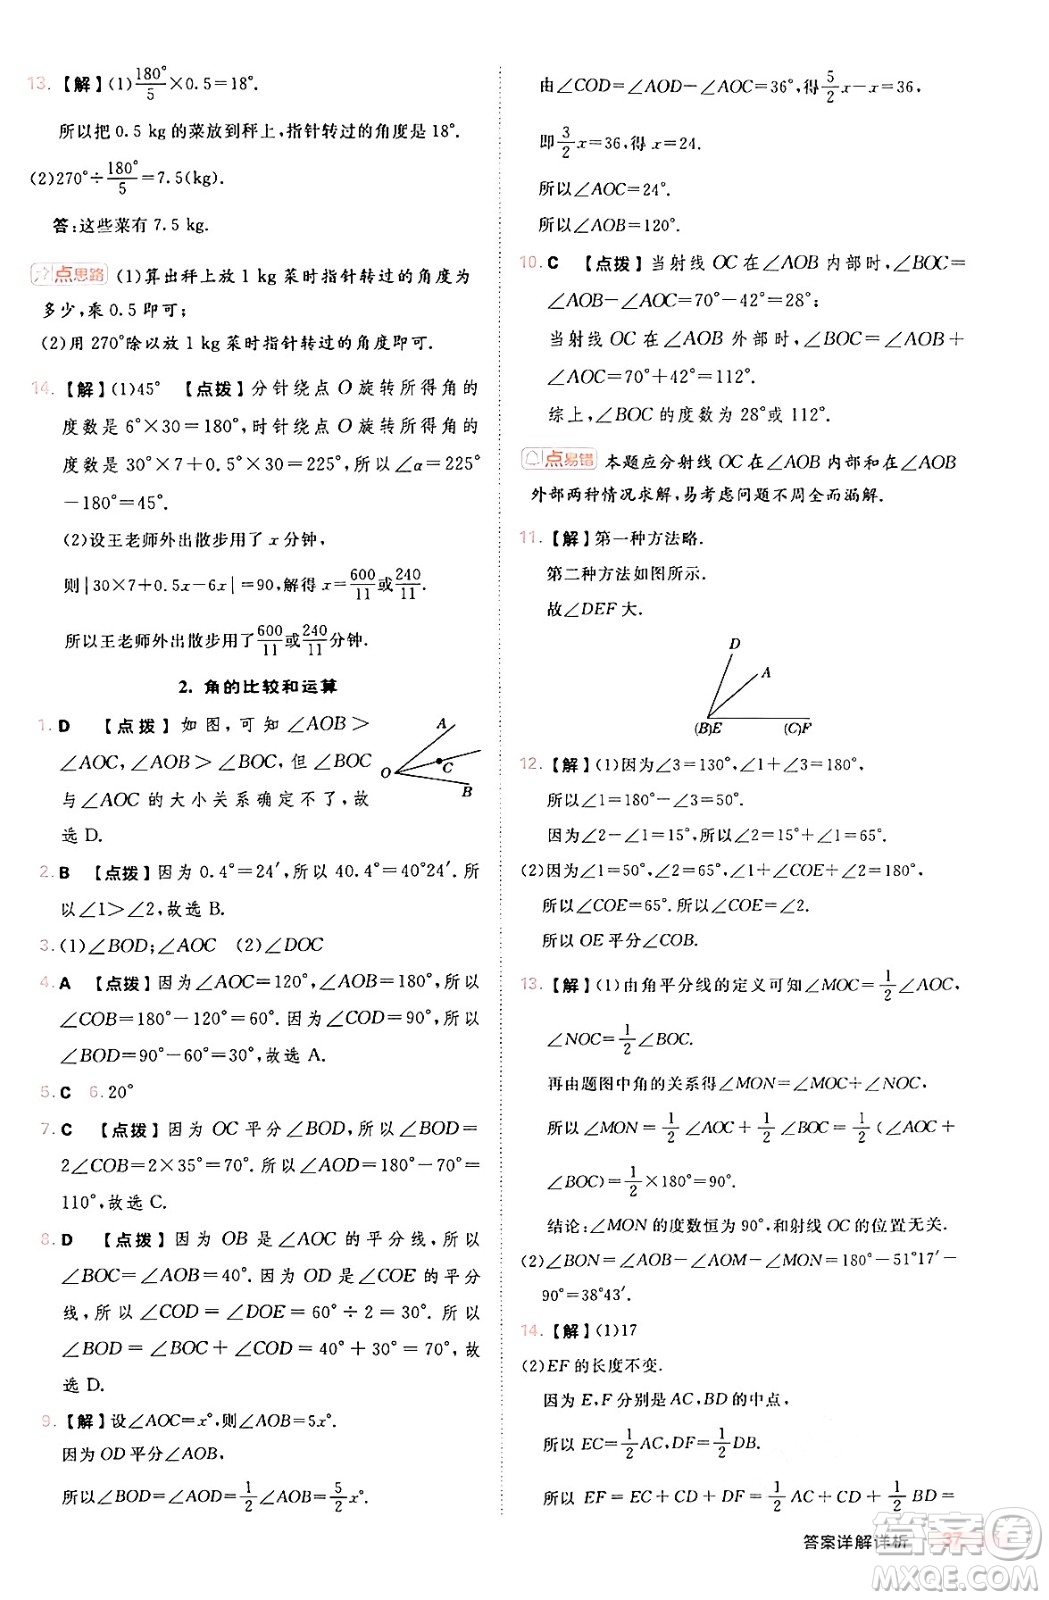 13.【解】(1)180°/5×0.5=18°.
所以把 0.5 kg 的菜放到秤上,指针转过的角度是 18°.
(2)270°÷180°/5=7.5(kg).
答:这些菜有 7.5 kg.
点思路 (1)算出秤上放 1 kg 菜时指针转过的角度为
多少,乘 0.5 即可;
(2)用 270°除以放 1 kg 菜时指针转过的角度即可.
14.【解】(1)45° 【点拨】分针绕点 O 旋转所得角的
度数是 6°×30=180°,时针绕点 O 旋转所得角的
度数是 30°×7+0.5°×30=225°,所以∠α=225°
-180°=45°.
(2)设王老师外出散步用了 x 分钟,
则|30×7+0.5x-6x|=90,解得 x=600/11或240/11.
所以王老师外出散步用了600/11或240/11分钟.
2. 角的比较和运算
1. D 【点拨】如图,可知∠AOB>
∠AOC,∠AOB>∠BOC,但∠BOC
与∠AOC 的大小关系确定不了,故
选 D.
A
O
C
B
2. B 【点拨】因为 0.4°=24′,所以 40.4°=40°24′.所
以∠1>∠2,故选 B.
3. (1)∠BOD;∠AOC (2)∠DOC
4. A 【点拨】因为∠AOC=120°,∠AOB=180°,所以
∠COB=180°-120°=60°.因为∠COD=90°,所以
∠BOD=90°-60°=30°,故选 A.
5. C 6. 20°
7. C 【点拨】因为 OC 平分∠BOD,所以∠BOD=
2∠COB=2×35°=70°.所以∠AOD=180°-70°=
110°,故选 C.
8. D 【点拨】因为 OB 是∠AOC 的平分线,所以
∠BOC=∠AOB=40°.因为 OD 是∠COE 的平分
线,所以∠COD=∠DOE=60°÷2=30°.所以
∠BOD=∠BOC+∠COD=40°+30°=70°.故
选 D.
9.【解】设∠AOC=x°,则∠AOB=5x°.
因为 OD 平分∠AOB,
所以∠BOD=∠AOD=1/2∠AOB=5/2x°.
由∠COD=∠AOD-∠AOC=36°,得5/2x-x=36,
即3/2x=36,x=24.
所以∠AOC=24°.
所以∠AOB=120°.
10. C 【点拨】当射线 OC 在∠AOB 内部时,∠BOC=
∠AOB-∠AOC=70°-42°=28°;
当射线 OC 在∠AOB 外部时,∠BOC=∠AOB+
∠AOC=70°+42°=112°.
综上,∠BOC 的度数为 28°或 112°.
点易错 本题应分射线 OC 在∠AOB 内部和在∠AOB
外部两种情况求解,易考虑问题不周全而漏解.
11.【解】第一种方法略.
第二种方法如图所示.
故∠DEF 大.
D
A
(B)E (C)F
12.【解】(1)因为∠3=130°,∠1+∠3=180°,
所以∠1=180°-∠3=50°.
因为∠2-∠1=15°,所以∠2=15°+∠1=65°.
(2)因为∠1=50°,∠2=65°,∠1+∠COE+∠2=180°,
所以∠COE=65°.所以∠COE=∠2.
所以 OE 平分∠COB.
13.【解】(1)由角平分线的定义可知∠MOC=1/2∠AOC,
∠NOC=1/2∠BOC.
再由题图中角的关系得∠MON=∠MOC+∠NOC,
所以∠MON=1/2∠AOC+1/2∠BOC=1/2(∠AOC+
∠BOC)=1/2×180°=90°.
结论:∠MON 的度数恒为 90°,和射线 OC 的位置无关.
(2)∠BON=∠AOB-∠AOM-∠MON=180°-51°17′-
90°=38°43′.
14.【解】(1)17
(2)EF 的长度不变.
因为 E,F 分别是 AC,BD 的中点,
所以 EC=1/2AC,DF=1/2DB.
所以 EF=EC+CD+DF=1/2AC+CD+1/2BD=
答案详解详析 37
答案圈
MXQE.COM